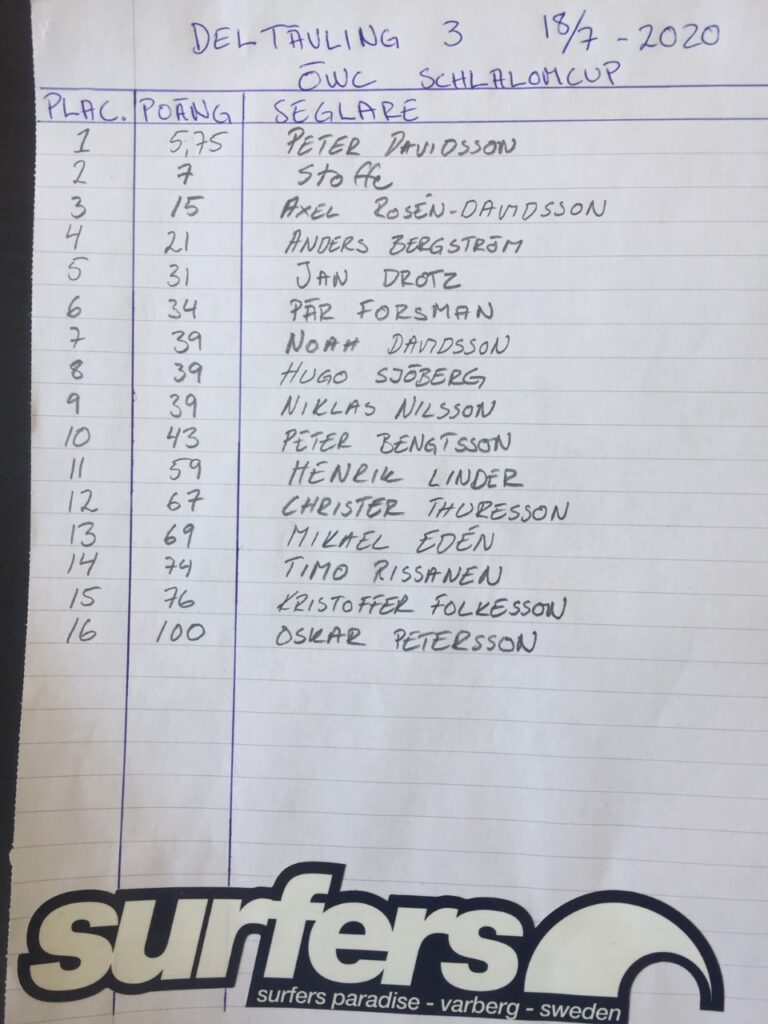 DELTÄVLING 3 18/7 - 2020
ÖWC SCHLALOMCUP
PLAC. POÄNG SEGLARE
1 5,75 PETER DAVIDSSON
2 7 Stoffe
3 15 AXEL ROSÉN-DAVIDSSON
4 21 ANDERS BERGSTRÖM
5 31 JAN DROTZ
6 34 PÄR FORSMAN
7 39 NOAH DAVIDSSON
8 39 HUGO SJÖBERG
9 39 NIKLAS NILSSON
10 43 PETER BENGTSSON
11 59 HENRIK LINDER
12 67 CHRISTER THURESSON
13 69 MIKAEL EDÉN
14 74 TIMO RISSANEN
15 76 KRISTOFFER FOLKESSON
16 100 OSKAR PETERSSON
surfers
surfers paradise - varberg - sweden